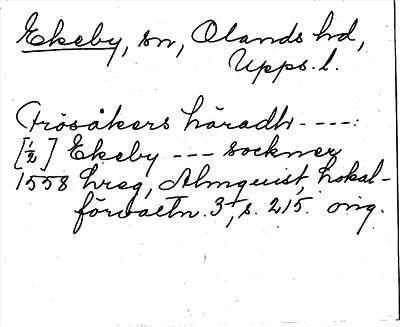 Ekeby, sn, Olands hd,
Upps. l.
Frösåkers häradh ----:
[½] Ekeby --- sockner
1558 hreg, Almquist, Lokal-
förvaltn. 3, s. 215. orig.